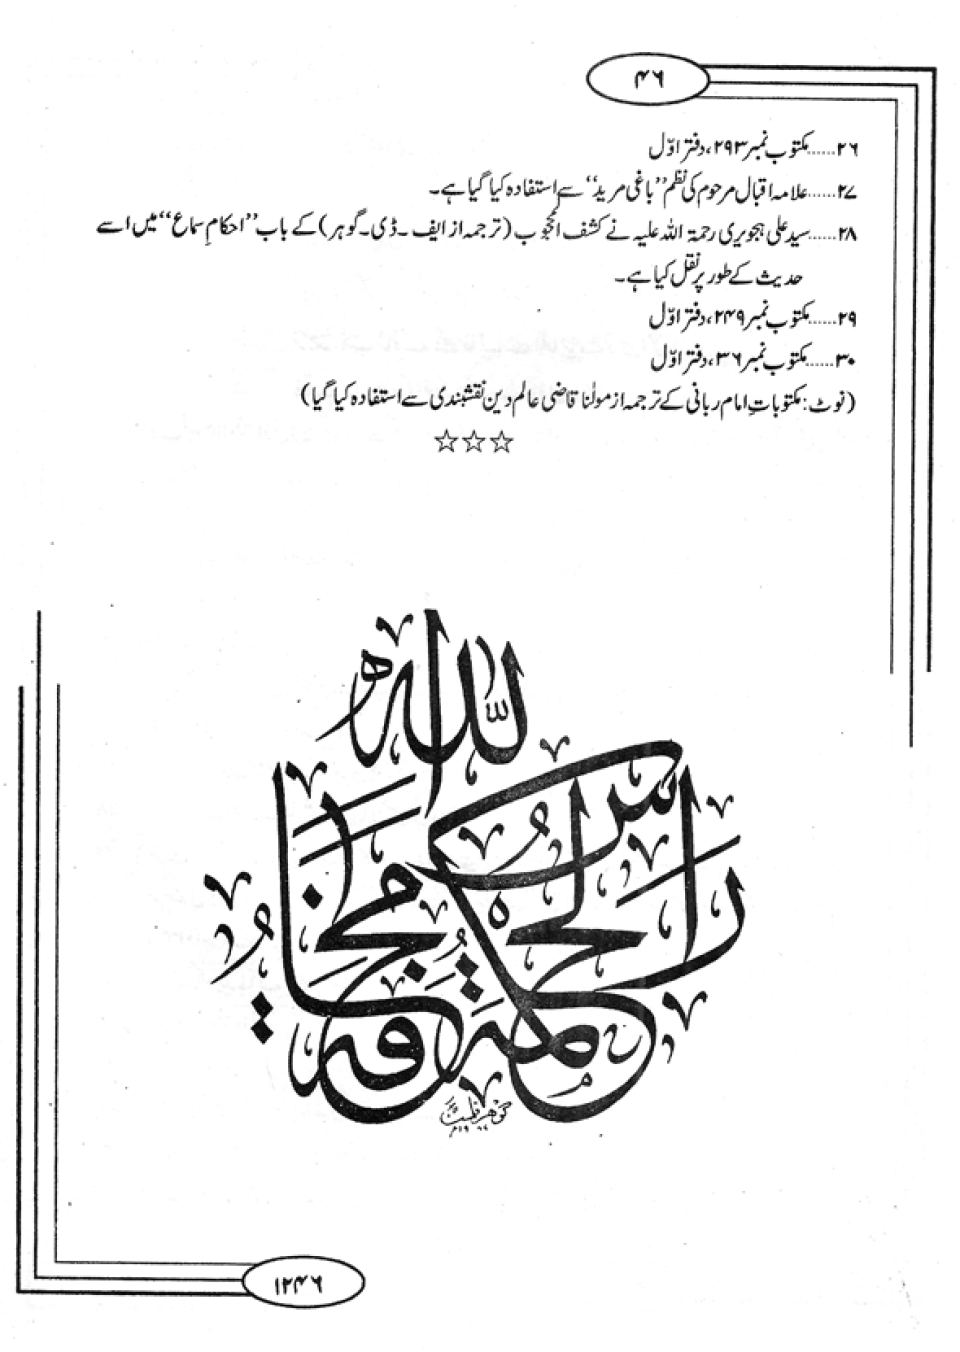 ۴۶
۲۶......مکتوب نمبر ۲۹۳، دفتر اوّل
۲۷......علامہ اقبال مرحوم کی نظم ’’باغی مرید‘‘ سے استفادہ کیا گیا ہے۔
۲۸......سید علی ہجویری رحمۃ اللہ علیہ نے کشف المحجوب (ترجمہ از ایف۔ڈی۔گوہر) کے باب ’’احکامِ سماع‘‘ میں اسے
حدیث کے طور پر نقل کیا ہے۔
۲۹......مکتوب نمبر ۲۴۹، دفتر اوّل
۳۰......مکتوب نمبر ۳۶، دفتر اوّل
(نوٹ: مکتوباتِ امام ربانی کے ترجمہ از مولٰنا قاضی عالم دین نقشبندی سے استفادہ کیا گیا)
☆☆☆
رأس الحكمة مخافة الله
گوهر قلم
۱۲۴۶